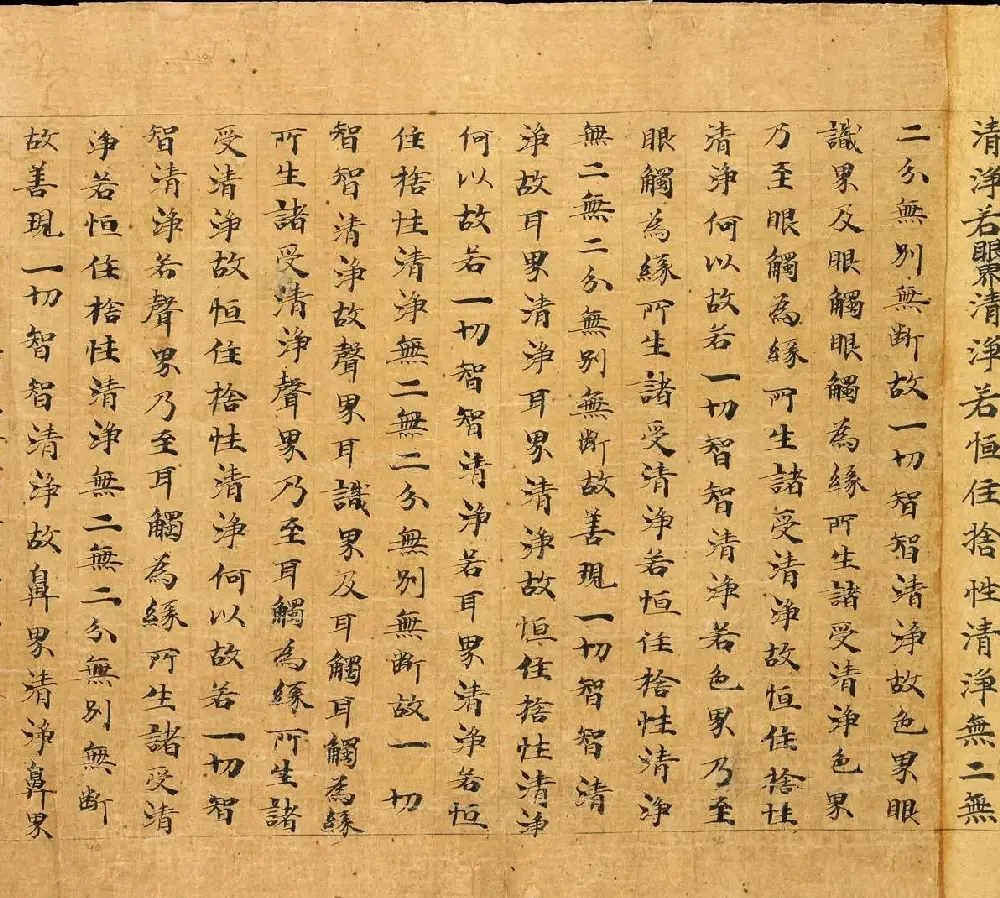 清浄若眼界清浄若恒住捨性清浄無二無
二分無別無断故一切智智清浄故色界眼
識界及眼觸眼觸為緣所生諸受清浄色界
乃至眼觸為緣所生諸受清浄故恒住捨性
清浄何以故若一切智智清浄若色界乃至
眼觸為緣所生諸受清浄若恒住捨性清浄
無二無二分無別無断故善現一切智智清
浄故耳界清浄耳界清浄故恒住捨性清浄
何以故若一切智智清浄若耳界清浄若恒
住捨性清浄無二無二分無別無断故一切
智智清浄故聲界耳識界及耳觸耳觸為緣
所生諸受清浄聲界乃至耳觸為緣所生諸
受清浄故恒住捨性清浄何以故若一切智
智清浄若聲界乃至耳觸為緣所生諸受清
浄若恒住捨性清浄無二無二分無別無断
故善現一切智智清浄故鼻界清浄鼻界